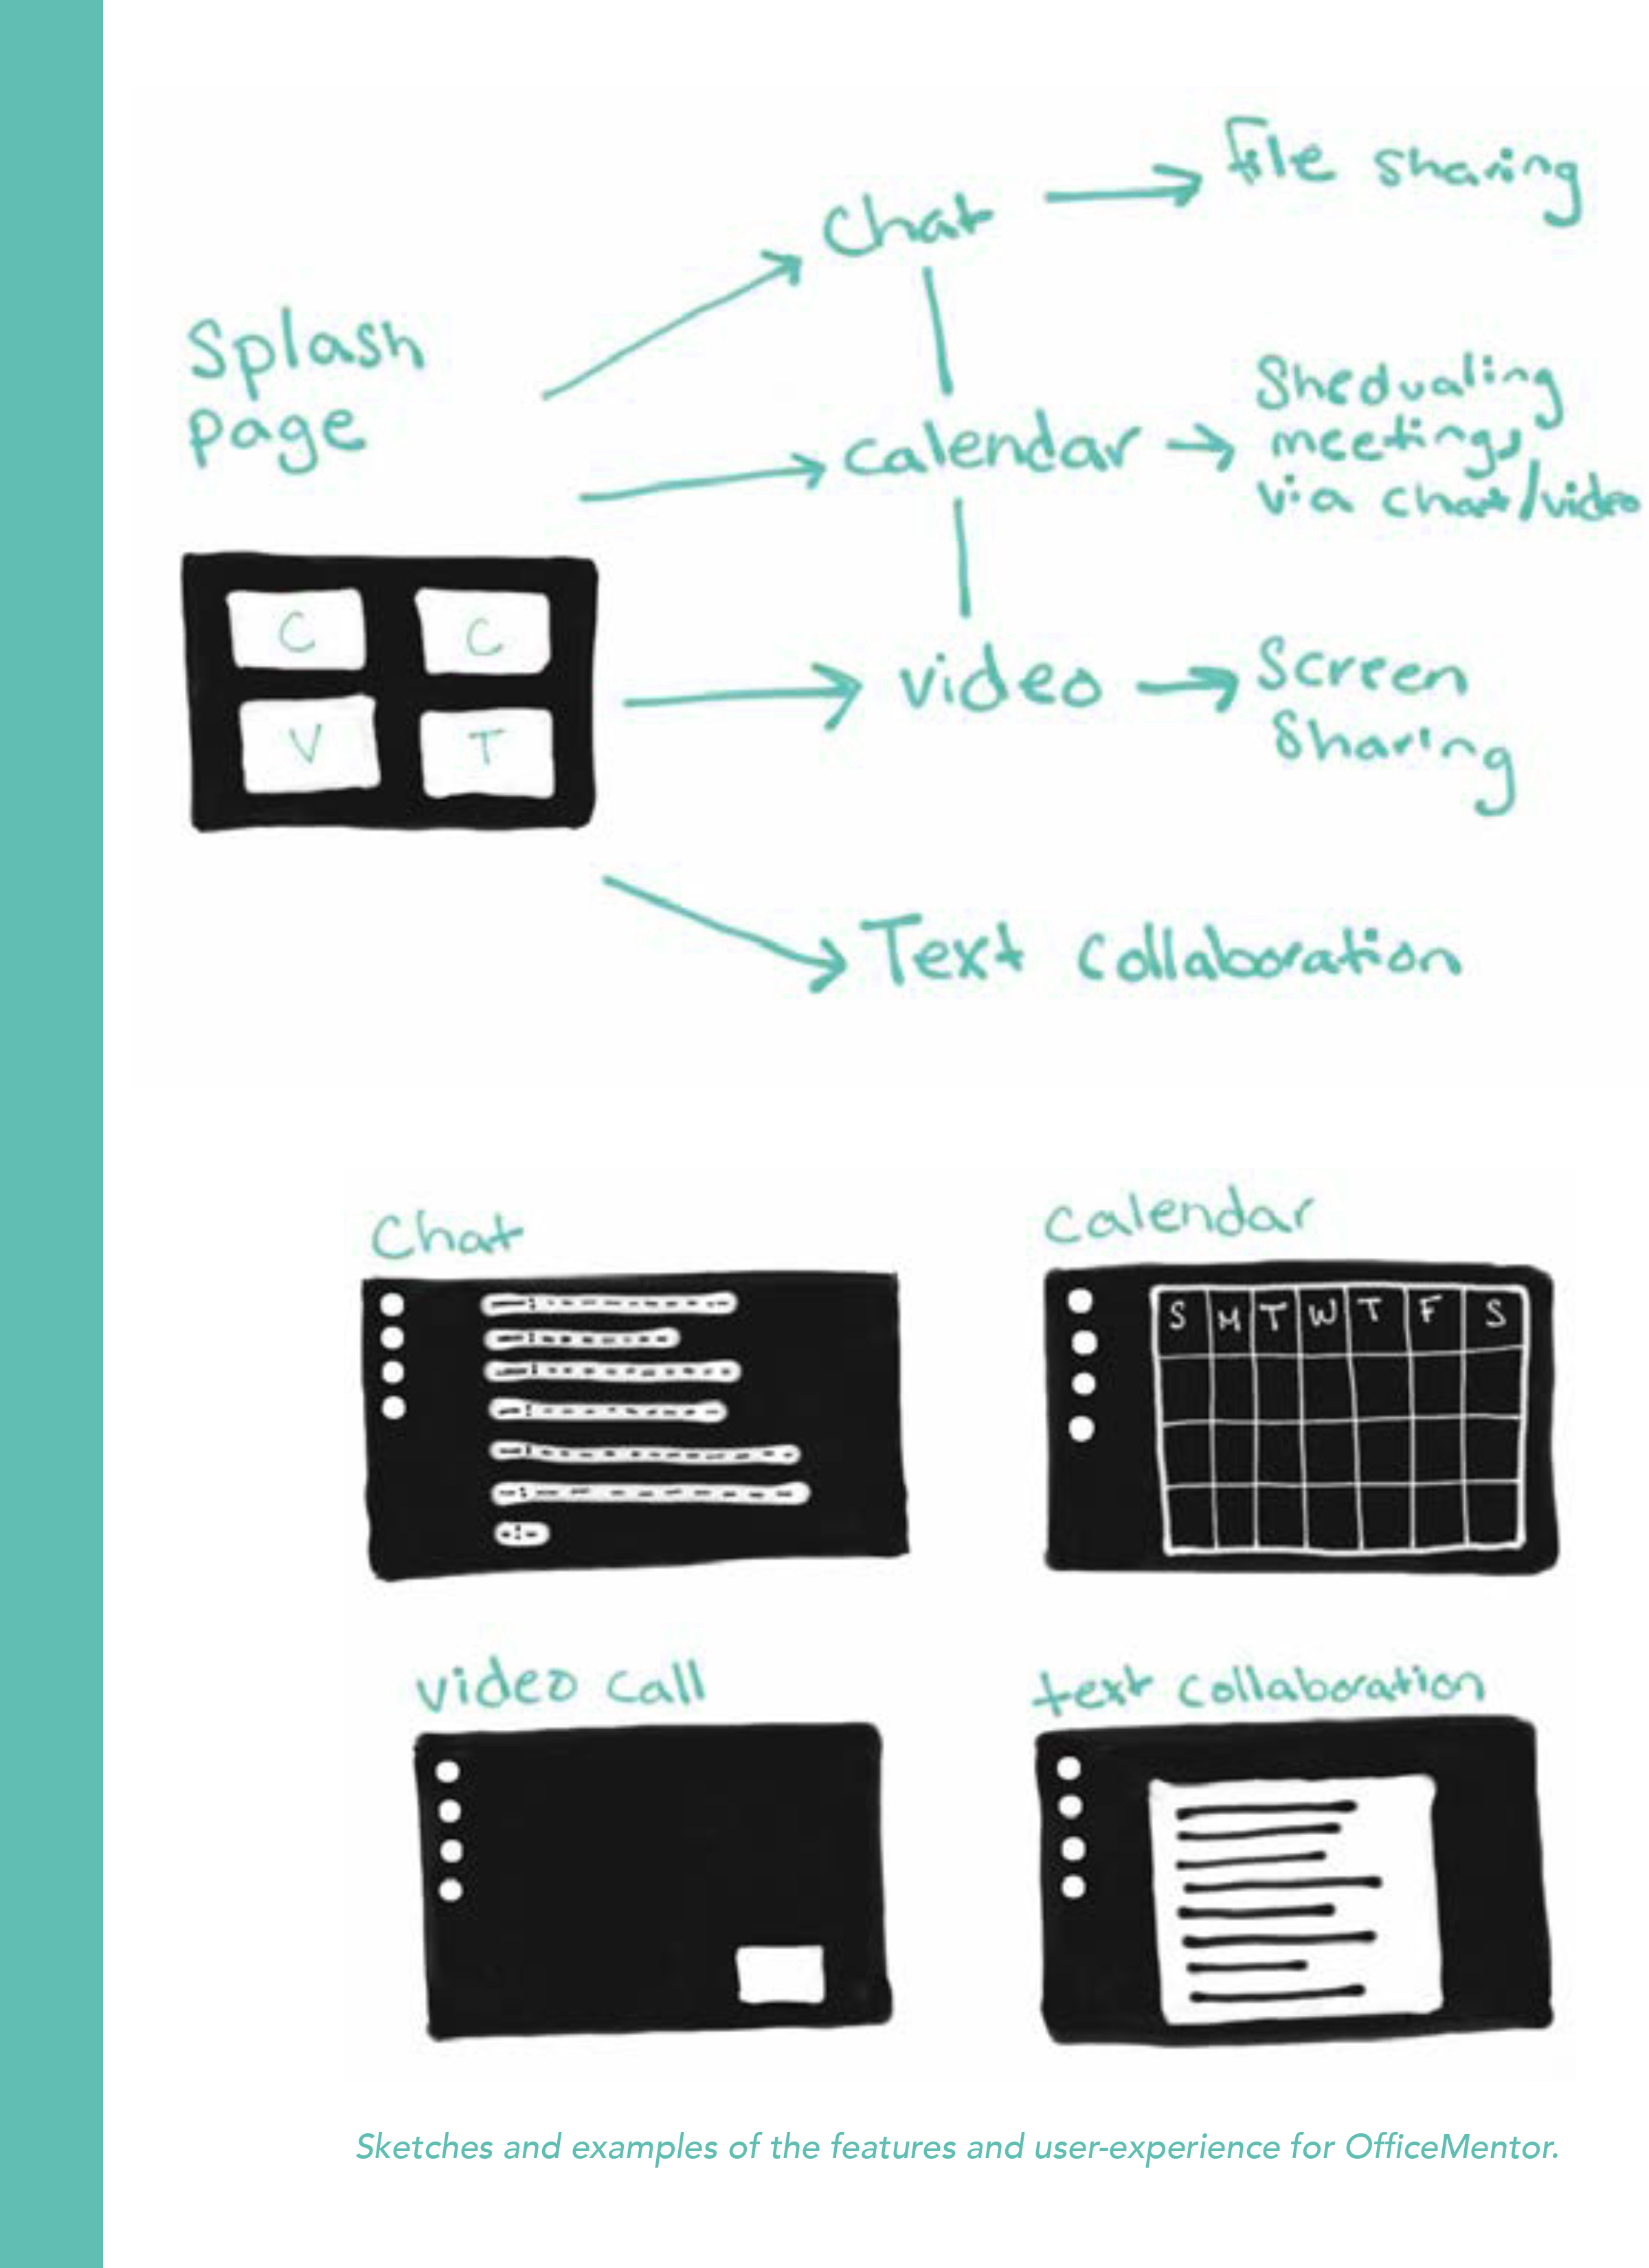 Splash
page
Chat
file sharing
calendar
Shedualing
meetings
via chat/video
C
C
V
T
video
Screen
Sharing
Text collaboration
Chat
calendar
S M T W T F S
video call
text collaboration
Sketches and examples of the features and user-experience for OfficeMentor.